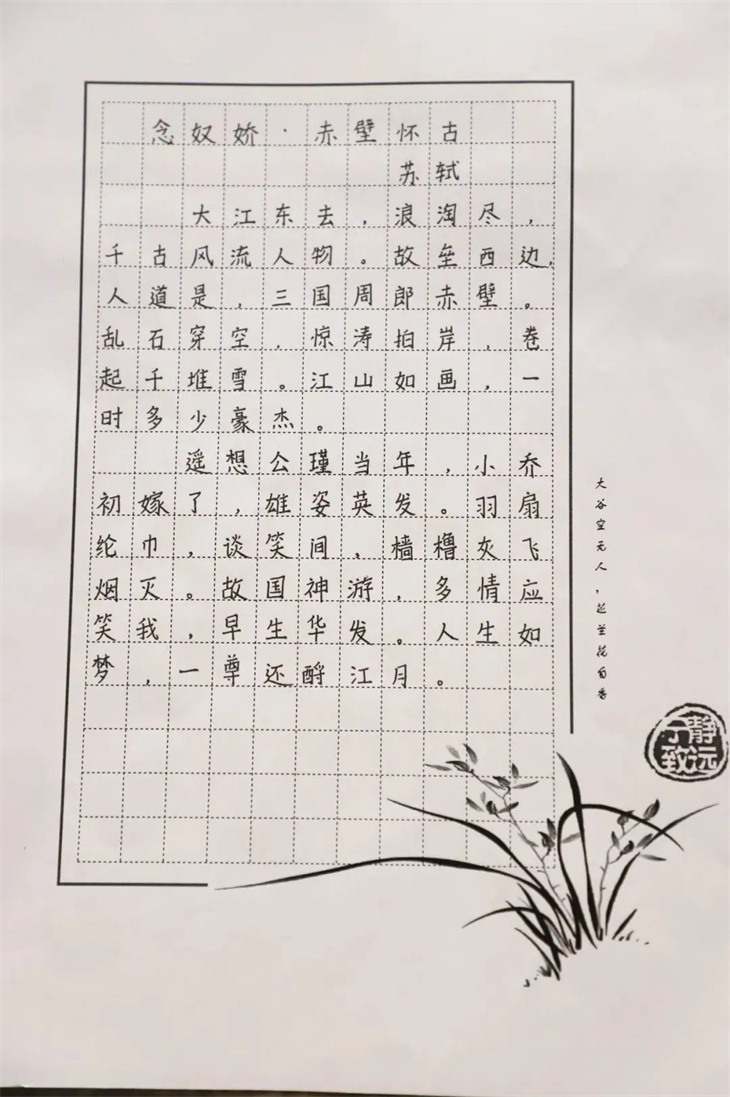 念奴娇·赤壁怀古
苏轼
大江东去，浪淘尽，
千古风流人物。故垒西边，
人道是，三国周郎赤壁。
乱石穿空，惊涛拍岸，卷
起千堆雪。江山如画，一
时多少豪杰。
遥想公瑾当年，小乔
初嫁了，雄姿英发。羽扇
纶巾，谈笑间，樯橹灰飞
烟灭。故国神游，多情应
笑我，早生华发。人生如
梦，一尊还酹江月。
大谷空无人，芝兰花自香
宁静致远